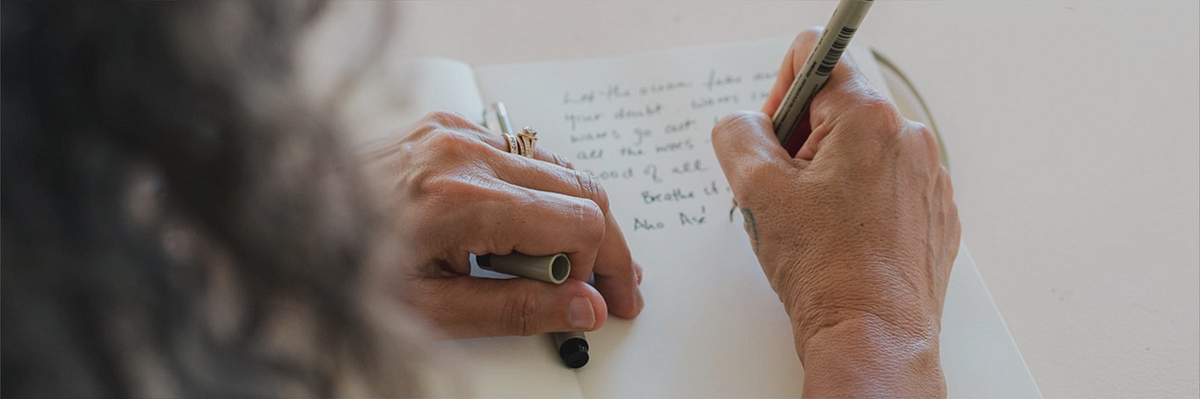 Let the ocean take
your doubt waves
waves go out.
all the
good of all
Breathe it
Aho Asé